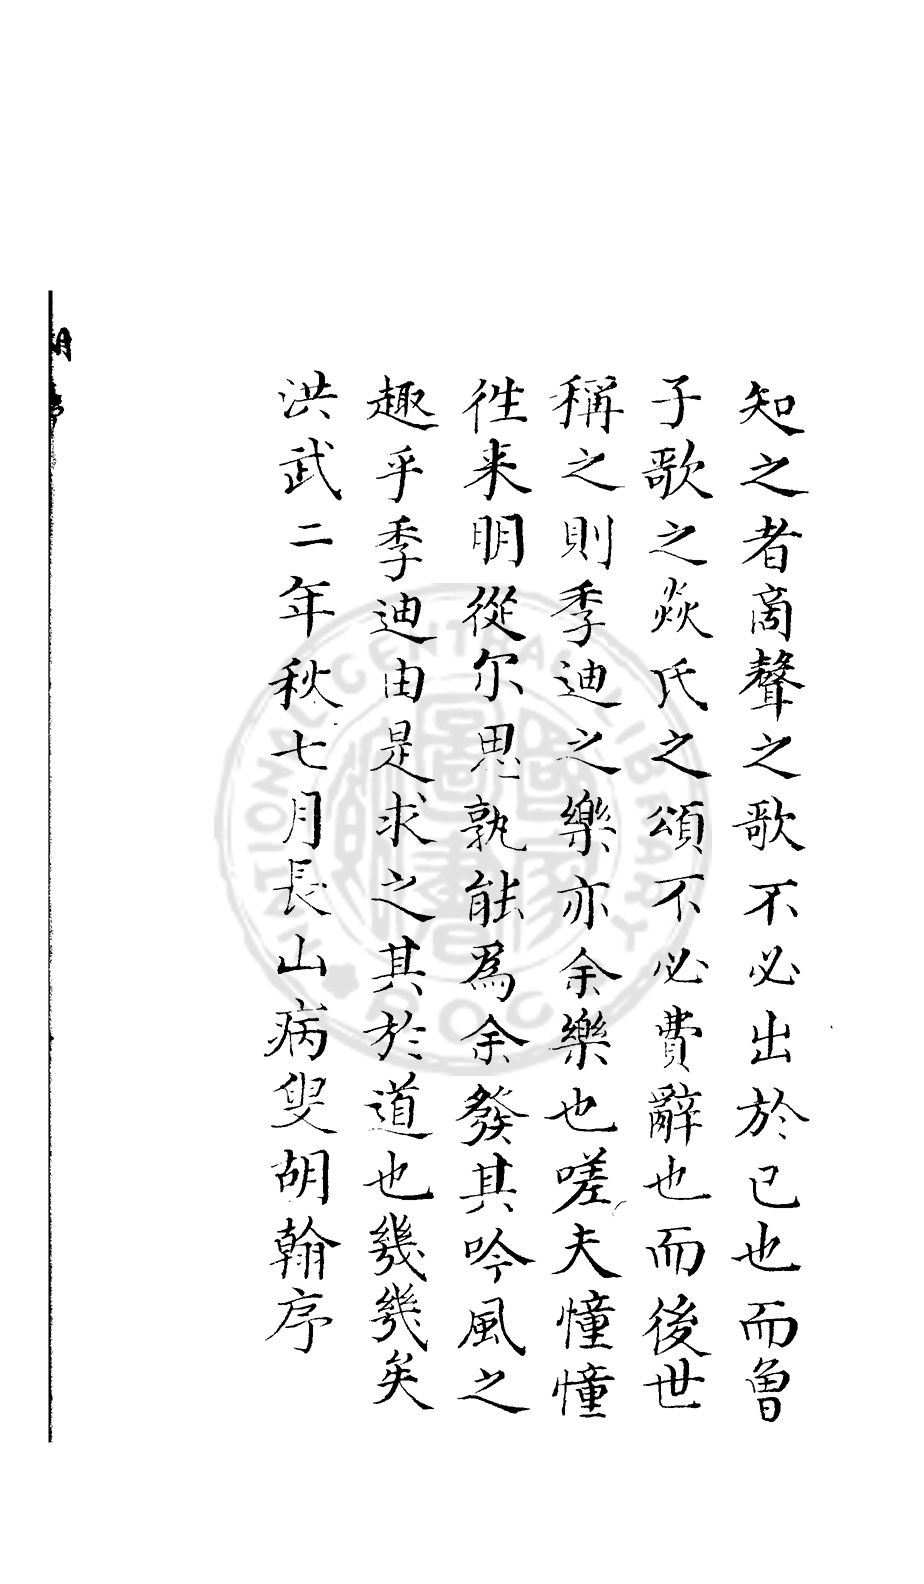 知之者商聲之歌不必出於已也而魯
子歌之焱氏之頌不必費辭也而後世
稱之則季迪之樂亦余樂也嗟夫憧憧
徃来明從尔思孰能為余發其吟風之
趣乎季迪由是求之其於道也幾幾矣
洪武二年秋七月長山病叟胡翰序
胡序
NATIONAL CENTRAL LIBRARY
R.O.C
國家圖書館